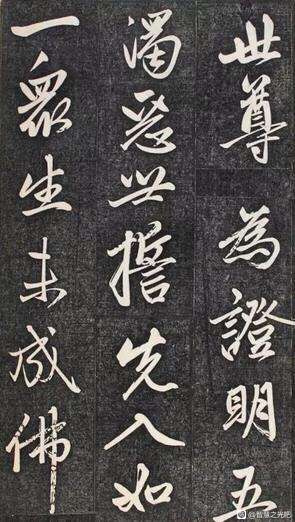 世尊為證明五
濁惡世誓先入如
一眾生未成佛
@智慧之光吧